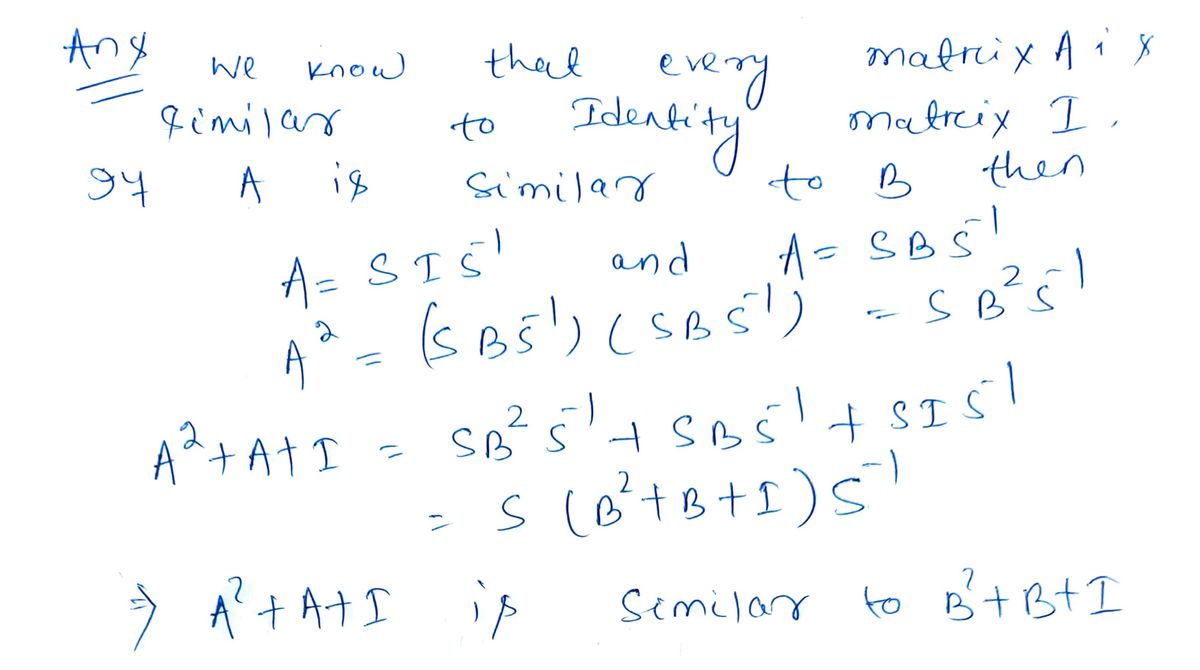 Ans we know that every matrix A is
similar to Identity matrix I.
If A is similar to B then
A = S I S⁻¹ and A = S B S⁻¹
A² = (S B S⁻¹) (S B S⁻¹) = S B² S⁻¹
A² + A + I = SB² S⁻¹ + S B S⁻¹ + S I S⁻¹
= S (B² + B + I) S⁻¹
⇒ A² + A + I is Similar to B² + B + I